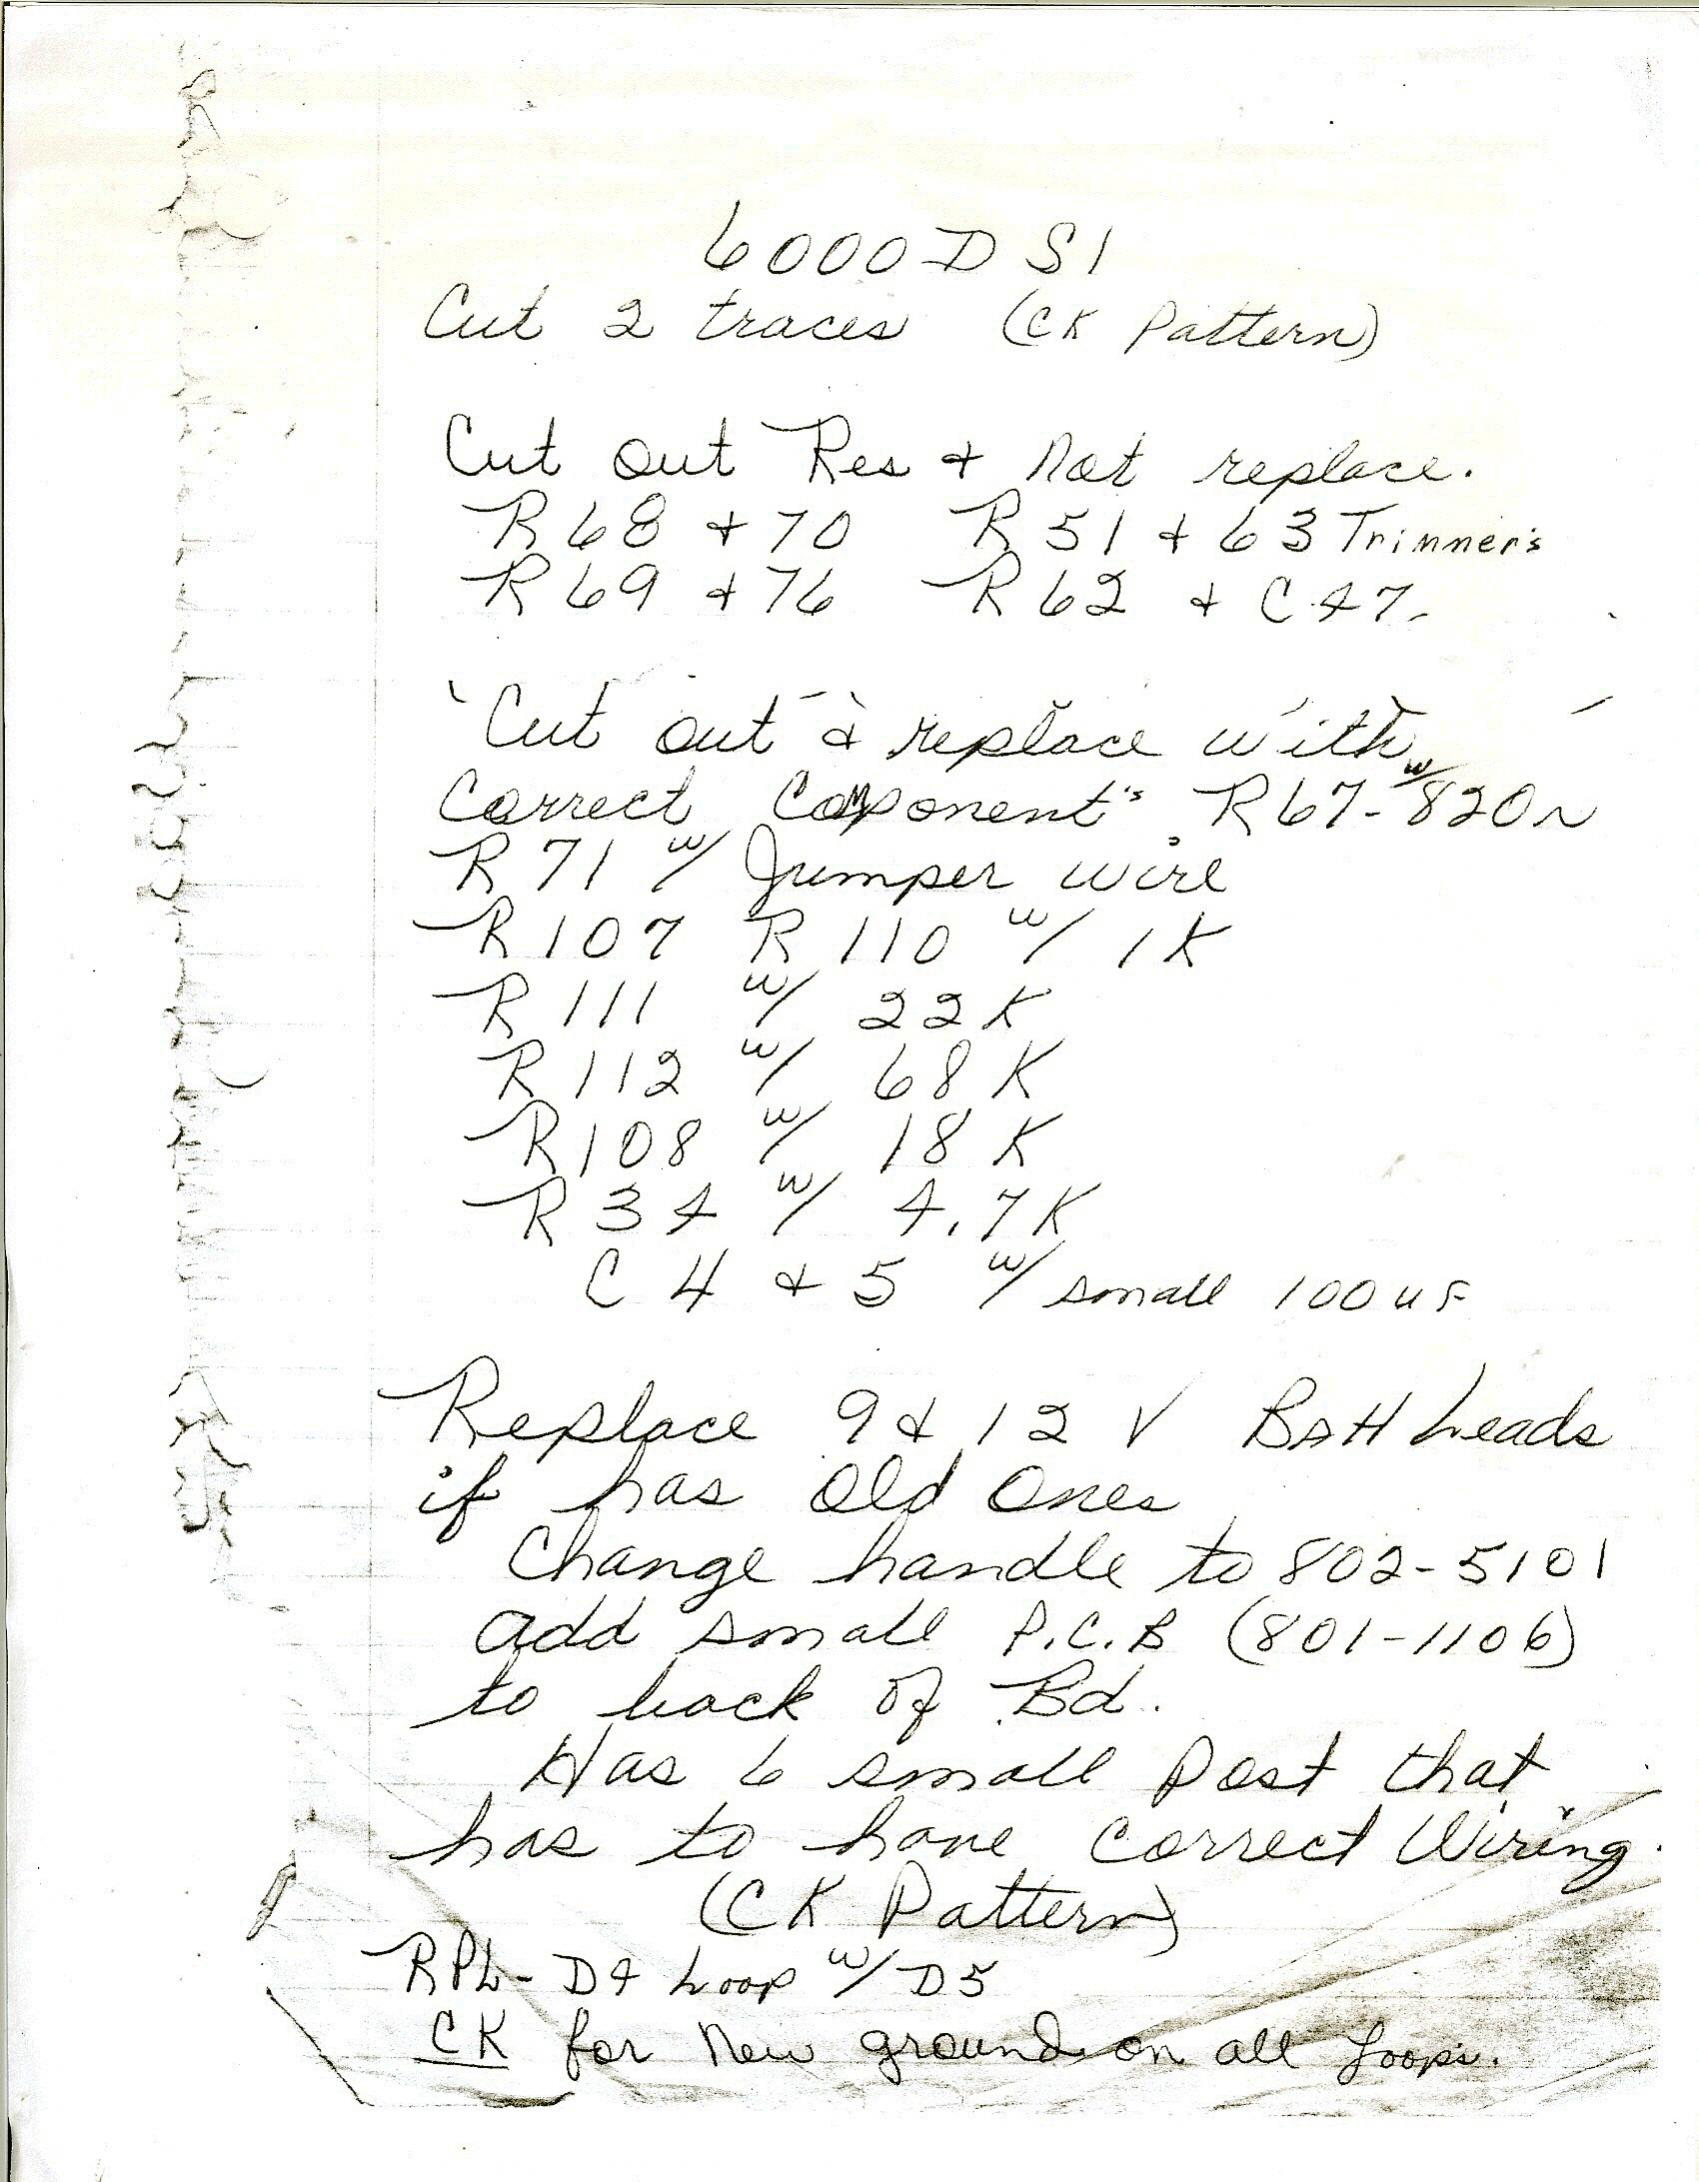 6000 D S1
Cut 2 traces (CK Pattern)
Cut out Res & Not replace.
R 68 & 70 R 51 & 63 Trimmers
R 69 & 76 R 62 & C 47
Cut out & replace with
Correct Component's R67 - w/ 820Ω
R 71 w/ Jumper wire
R 107 R 110 w/ 1K
R 111 w/ 22K
R 112 w/ 68K
R 108 w/ 18K
R 34 w/ 4.7K
C 4 & 5 w/ small 100 uF
Replace 9 & 12 V Batt Leads
if has Old Ones
Change handle to 802-5101
add small P.C.B (801-1106)
to back of Bd.
Has 6 small Post that
has to have Correct Wiring.
(CK Pattern)
RPL - D4 Loop w/ D5
CK for New ground on all Loops.